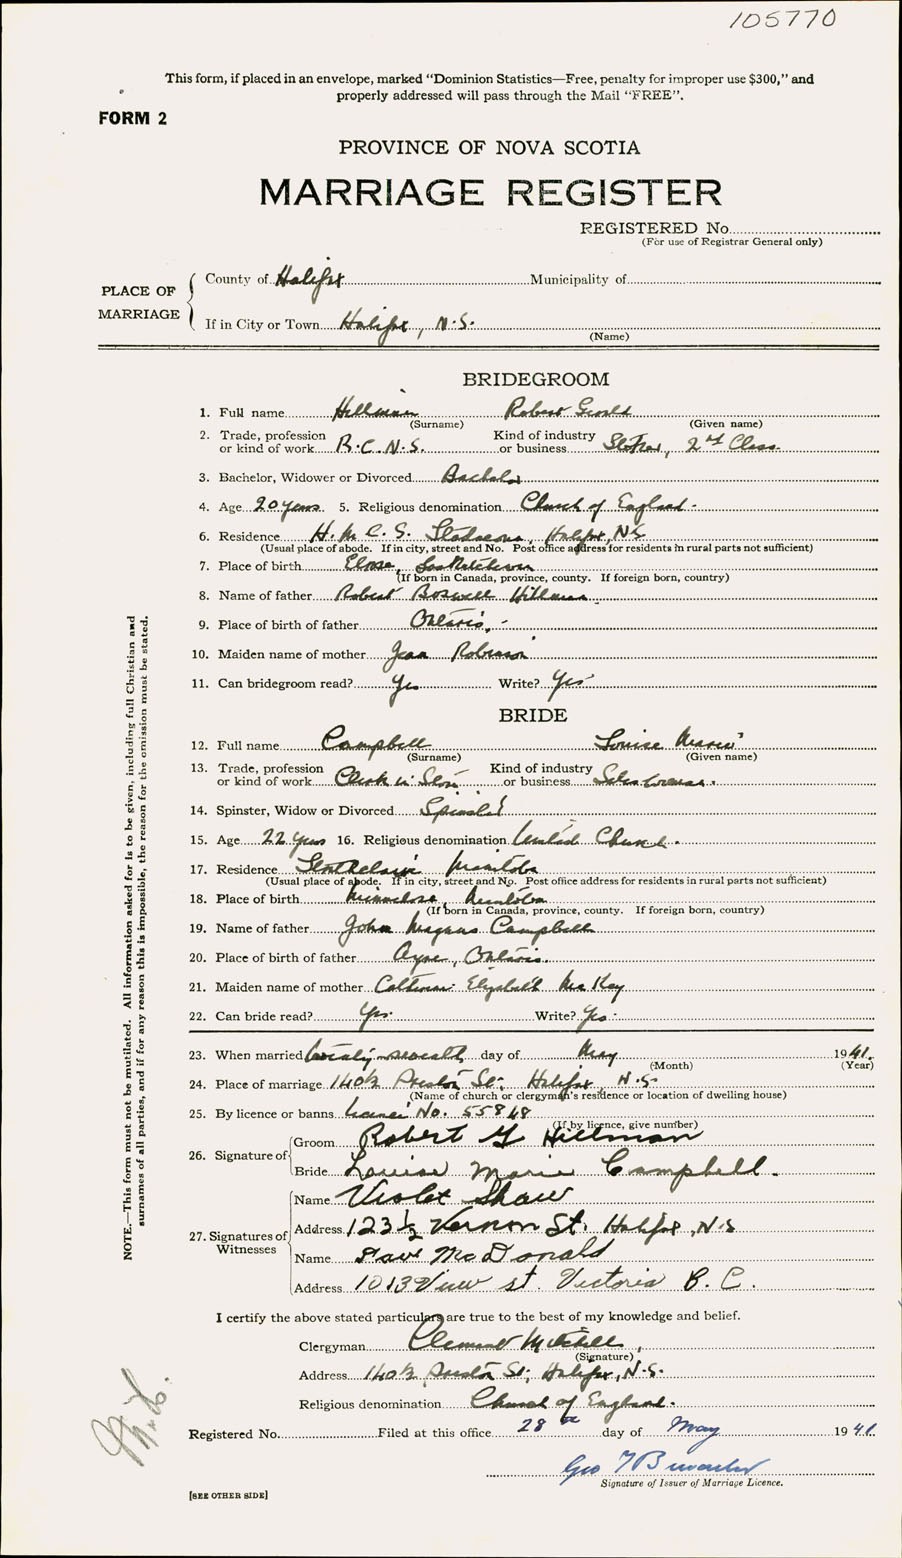 105770
This form, if placed in an envelope, marked “Dominion Statistics—Free, penalty for improper use $300,” and
properly addressed will pass through the Mail “FREE”.
FORM 2
PROVINCE OF NOVA SCOTIA
MARRIAGE REGISTER
REGISTERED No
(For use of Registrar General only)
PLACE OF MARRIAGE
County of Halifax Municipality of
If in City or Town Halifax, N.S.
(Name)
BRIDEGROOM
1. Full name Hillman Robert Gerald
(Surname) (Given name)
2. Trade, profession or kind of work R.C.N.S. Kind of industry or business Stoker, 2nd Class
3. Bachelor, Widower or Divorced Bachelor
4. Age 20 years 5. Religious denomination Church of England
6. Residence H.M.C.S. Stadacona, Halifax, N.S.
(Usual place of abode. If in city, street and No. Post office address for residents in rural parts not sufficient)
7. Place of birth Saskatchewan
(If born in Canada, province, county. If foreign born, country)
8. Name of father Robert Boswell Hillman
9. Place of birth of father Ontario
10. Maiden name of mother Jean Robinson
11. Can bridegroom read? Yes Write? Yes
BRIDE
12. Full name Campbell Louise Marie
(Surname) (Given name)
13. Trade, profession or kind of work Clerk in Store Kind of industry or business Saleswoman
14. Spinster, Widow or Divorced Spinster
15. Age 22 years 16. Religious denomination United Church
17. Residence Strathclair Manitoba
(Usual place of abode. If in city, street and No. Post office address for residents in rural parts not sufficient)
18. Place of birth Minnedosa, Manitoba
(If born in Canada, province, county. If foreign born, country)
19. Name of father John Magnus Campbell
20. Place of birth of father Ontario
21. Maiden name of mother Catherine Elizabeth McKay
22. Can bride read? Yes Write? Yes
23. When married twenty-seventh day of May 1941
(Month) (Year)
24. Place of marriage 140½ Preston St., Halifax, N.S.
(Name of church or clergyman’s residence or location of dwelling house)
25. By licence or banns Licence No. 55848
(If by licence, give number)
26. Signature of
Groom Robert G Hillman
Bride Louise Marie Campbell.
27. Signatures of Witnesses
Name Violet Shaw
Address 123½ Vernon St. Halifax, N.S
Name McDonald
Address 1013 View st. Victoria B.C.
I certify the above stated particulars are true to the best of my knowledge and belief.
Clergyman Clement Mitchell
(Signature)
Address 140½ Preston St., Halifax, N.S.
Religious denomination Church of England.
Registered No. Filed at this office 28th day of May 1941
Geo
Signature of Issuer of Marriage Licence.
[SEE OTHER SIDE]
NOTE.—This form must not be mutilated. All information asked for is to be given, including full Christian and
surnames of all parties, and if for any reason this is impossible, the reason for the omission must be stated.